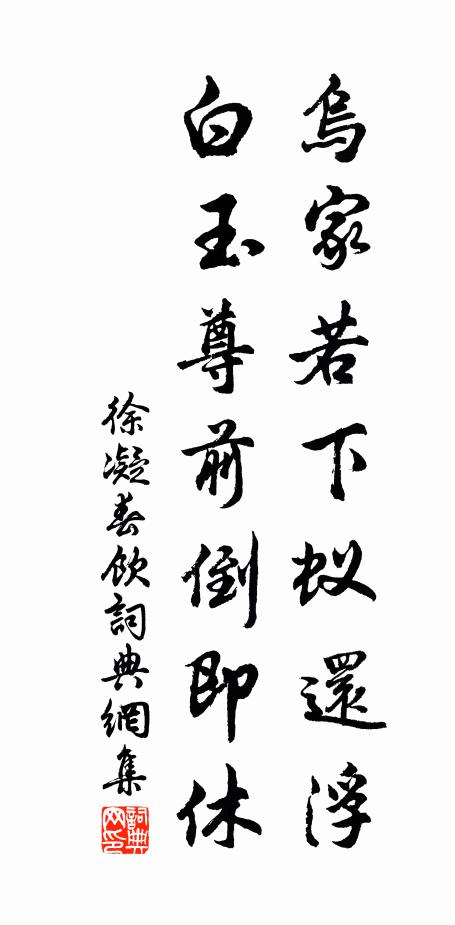 烏家若下蚁還浮
白玉尊前倒即休
徐凝春飲詞典網集
詞典网印